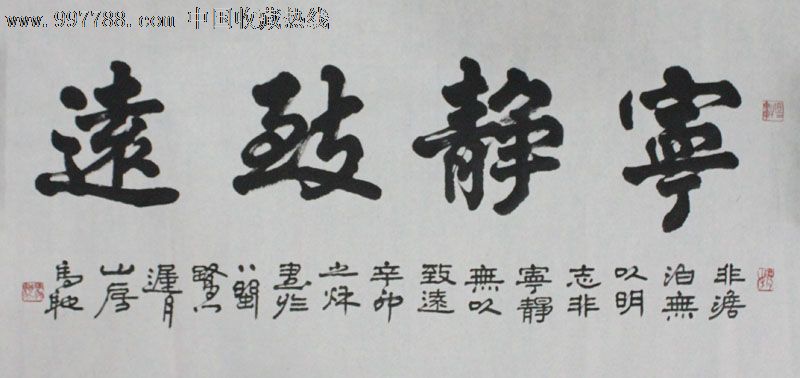 www.997788.com 中国收藏热线
寧静致遠
非澹
泊無
以明
志非
寧静
無以
致遠
辛卯
之秋
書於
八閩
遲月
山房
馬馳